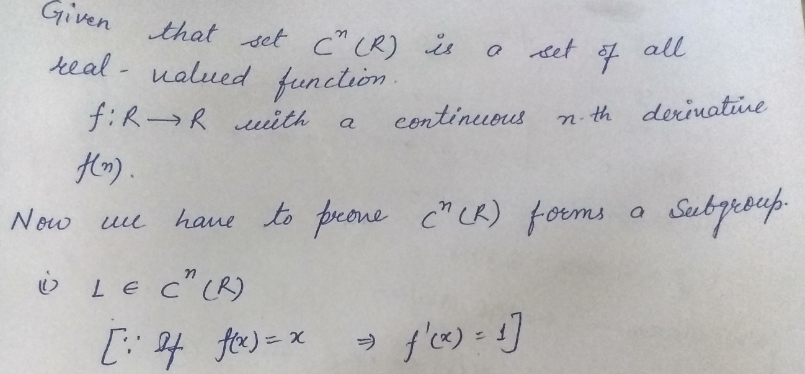 Given that set Cⁿ(R) is a set of all
real-valued function.
f: R → R with a continuous n-th derivative
f(n).
Now we have to prove Cⁿ(R) forms a Subgroup.
i) 1 ∈ Cⁿ(R)
[∵ If f(x) = x ⇒ f'(x) = 1]